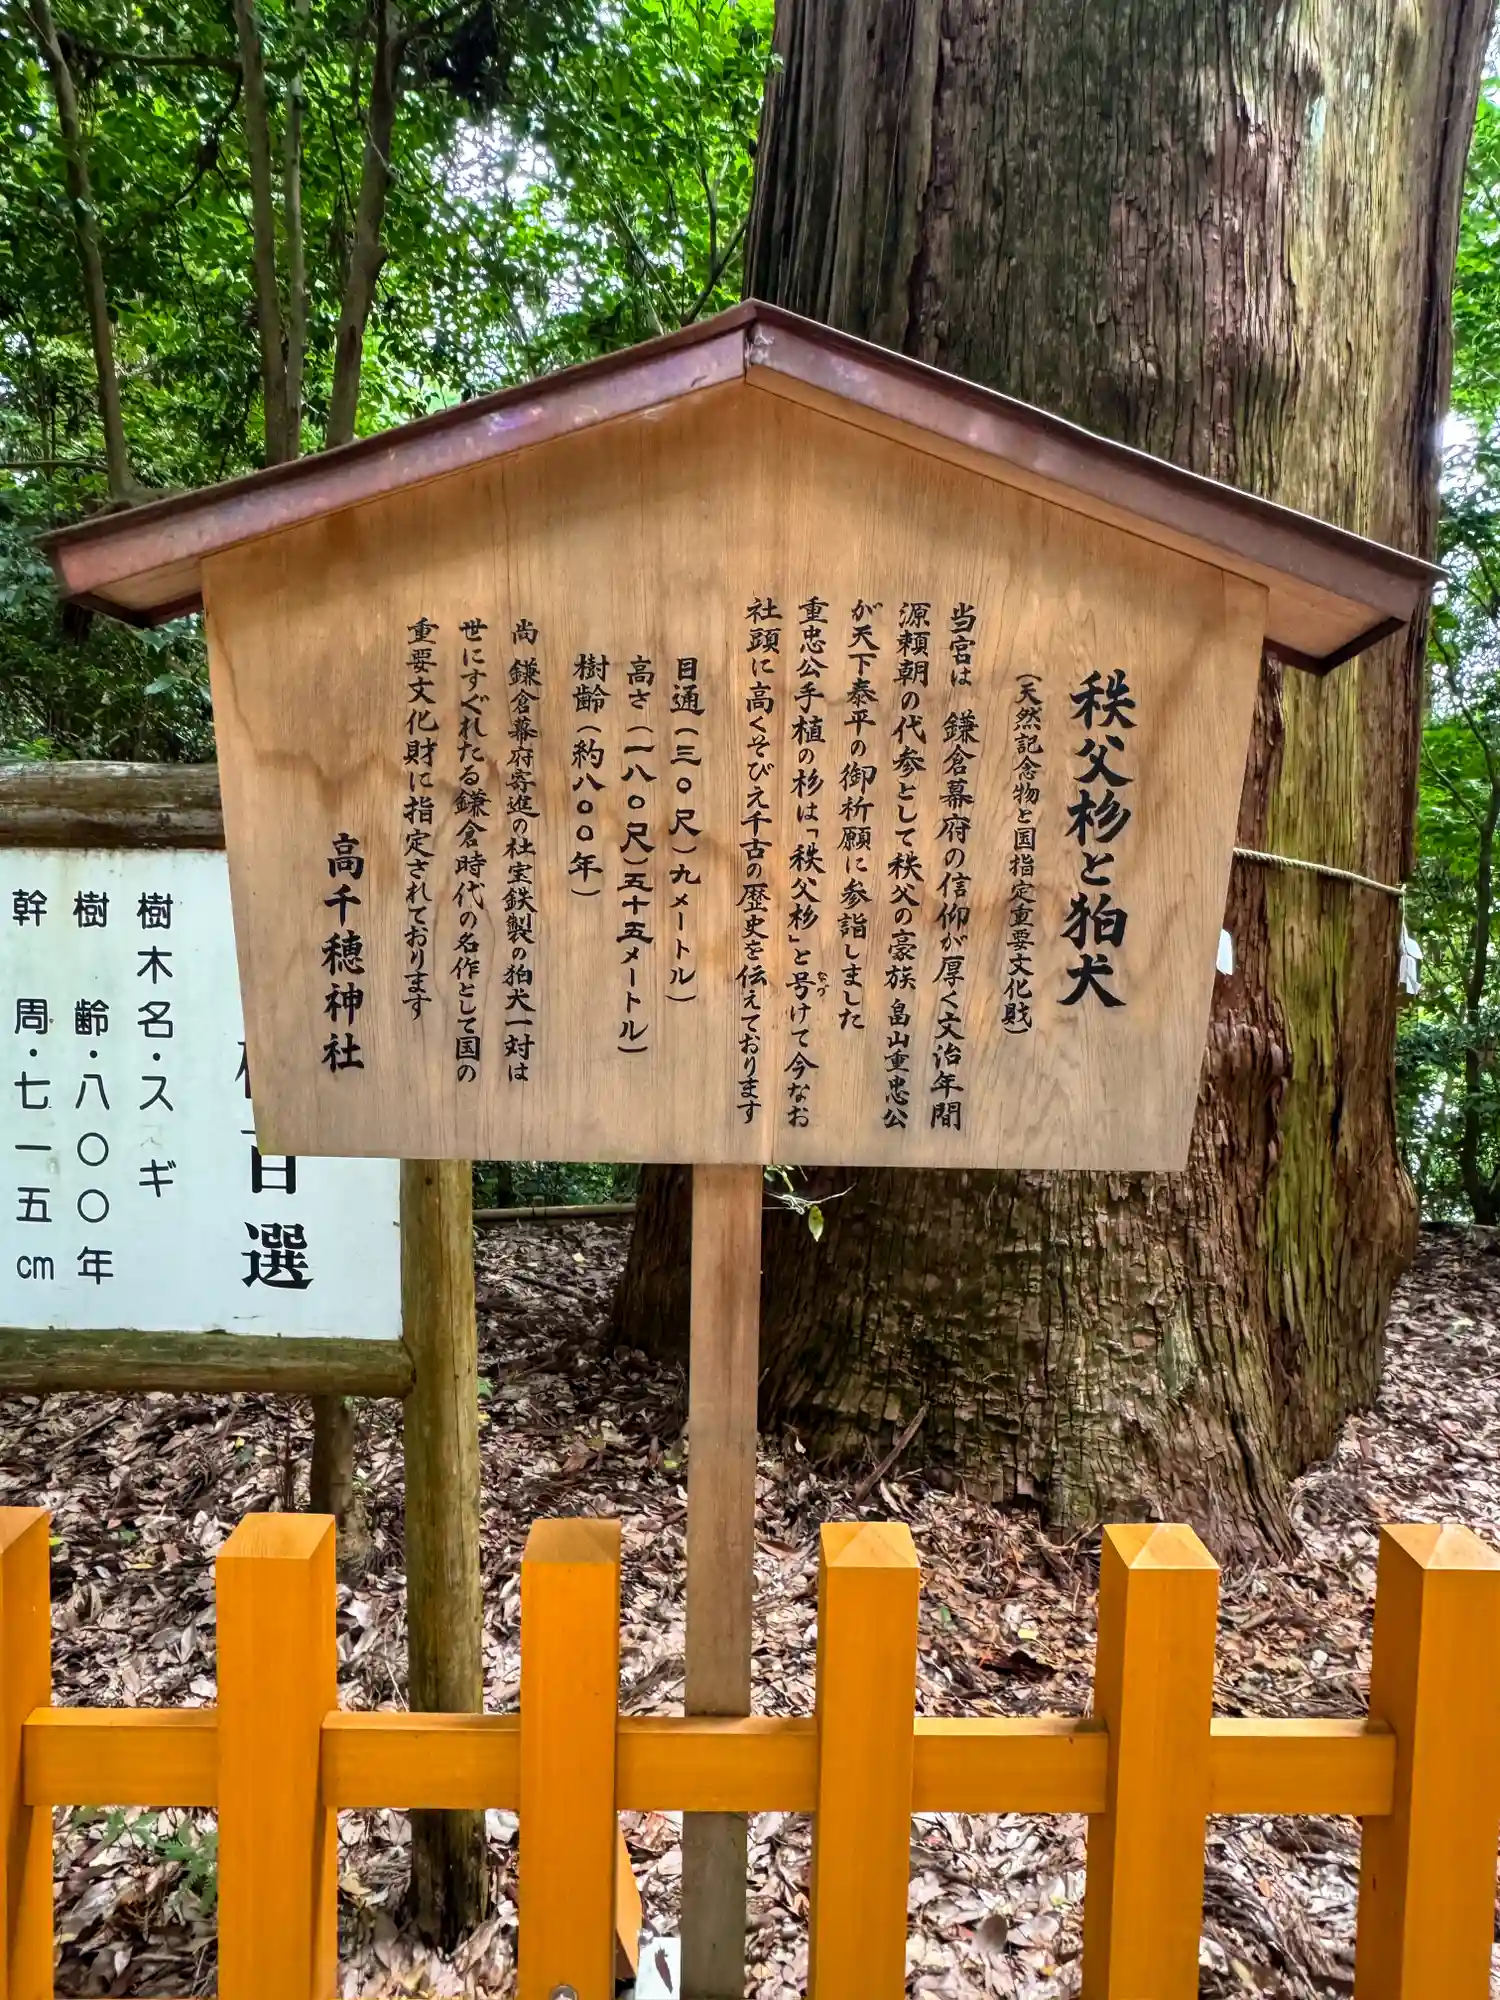 秩父杉と狛犬
(天然記念物と国指定重要文化財)
当宮は 鎌倉幕府の信仰が厚く文治年間
源頼朝の代参として秩父の豪族 畠山重忠公
が天下泰平の御祈願に参詣しました
重忠公手植の杉は「秩父杉」と号けて今なお
なづ
社頭に高くそびえ千古の歴史を伝えております
目通(三〇尺)九メートル)
高さ(一八〇尺)五十五メートル)
樹齢(約八〇〇年)
尚 鎌倉幕府寄進の社宝鉄製の狛犬一対は
世にすぐれたる鎌倉時代の名作として国の
重要文化財に指定されております
高千穂神社
百選
樹木名・スギ
樹 齢・八〇〇年
幹 周・七一五cm